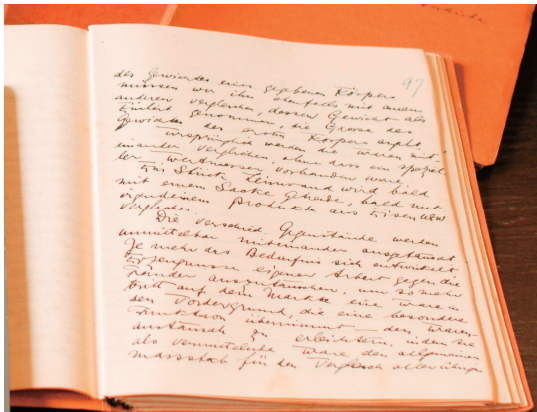 97
des Gewichtes eines gegebenen Körpers
müssen wir ihn ebenfalls mit einem
anderen vergleichen, dessen Gewicht als
Einheit genommen, die Grösse des
Gewichtes des ersten Körpers ergibt.
Ursprünglich werden die Waren mit-
einander verglichen, ohne dass ein speziel-
ler Wertmesser vorhanden wäre.
Ein Stück Leinwand wird bald
mit einem Sacke Getreide, bald mit
irgendeinem Produkte aus Eisen usw
verglichen.
Die verschied. Gegenstände werden
unmittelbar miteinander ausgetauscht.
Je mehr das Bedürfnis sich entwickelt
Erzeugnisse eigener Arbeit gegen die
anderer auszutauschen, um so mehr
tritt auf dem Markte eine Ware in
den Vordergrund, die eine besondere
Funktion übernimmt – den Waren-
austausch zu erleichtern, indem sie
als vermittelnde Ware den allgemeinen
Massstab für den Vergleich aller übrigen